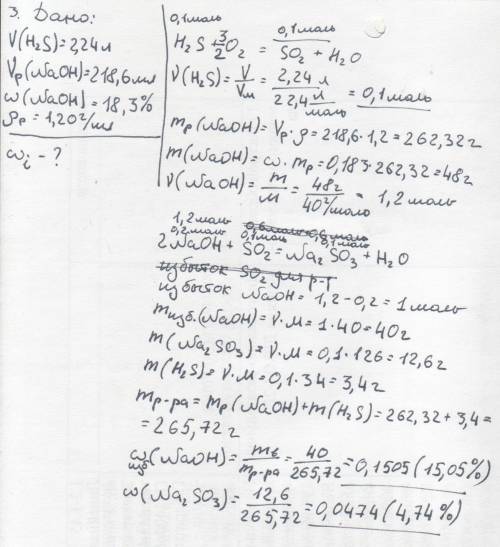 3. Дано:
V(H₂S)=2,24л
Vр(NaOH)=218,6мл
ω(NaOH)=18,3%
ρр=1,20г/мл
ωᵢ-?
0,1моль 0,1моль
H₂S+3/2O₂ = SO₂+H₂O
ν(H₂S)=V/Vм=2,24 л/22,4 л/моль=0,1моль
mр(NaOH)=Vр·ρ=218,6·1,2=262,32г
m(NaOH)=ω·mр=0,183·262,32=48г
ν(NaOH)=m/M=48г/40г/моль=1,2моль
1,2моль
0,2моль 0,1моль 0,1моль
2NaOH+SO₂=Na₂SO₃+H₂O
избыток SO₂ для р-р
избыток NaOH=1,2-0,2=1моль
mизб.(NaOH)=ν·M=1·40=40г
m(Na₂SO₃)=ν·M=0,1·126=12,6г
m(H₂S)=ν·M=0,1·34=3,4г
mр-ра=mр(NaOH)+m(H₂S)=262,32+3,4=
=265,72г
ωизб(NaOH)=mв/mр-ра=40/265,72=0,1505(15,05%)
ω(Na₂SO₃)=12,6/265,72=0,0474(4,74%)